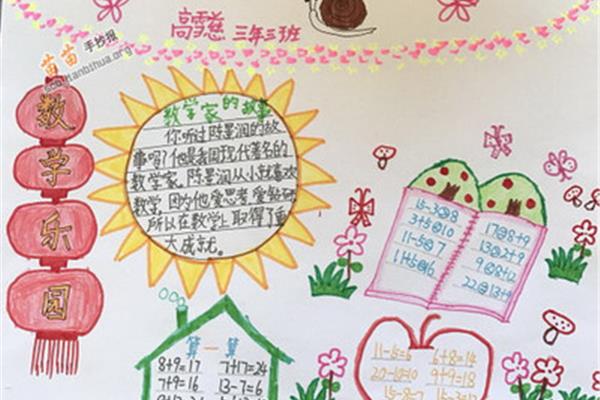 高雪慈 三年三班
苗苗手抄报
数
学
乐
园
数学家的故事
你听过陈景润的故
事吗?他是我国现代著名的
数学家。陈景润从小就喜欢
数学,因为他爱思考、爱钻研
所以在数学上取得了重
大成就。
15-3○8
3+5○10
11-5○7
11+5○16
17○8+9
13○2+9
9○8+2
22○13+9
算一算
8+9=17 7+17=24
7+9=16 13-7=6
11-5=6 6+8=14
20-10=10 9+9=18
15-8=7